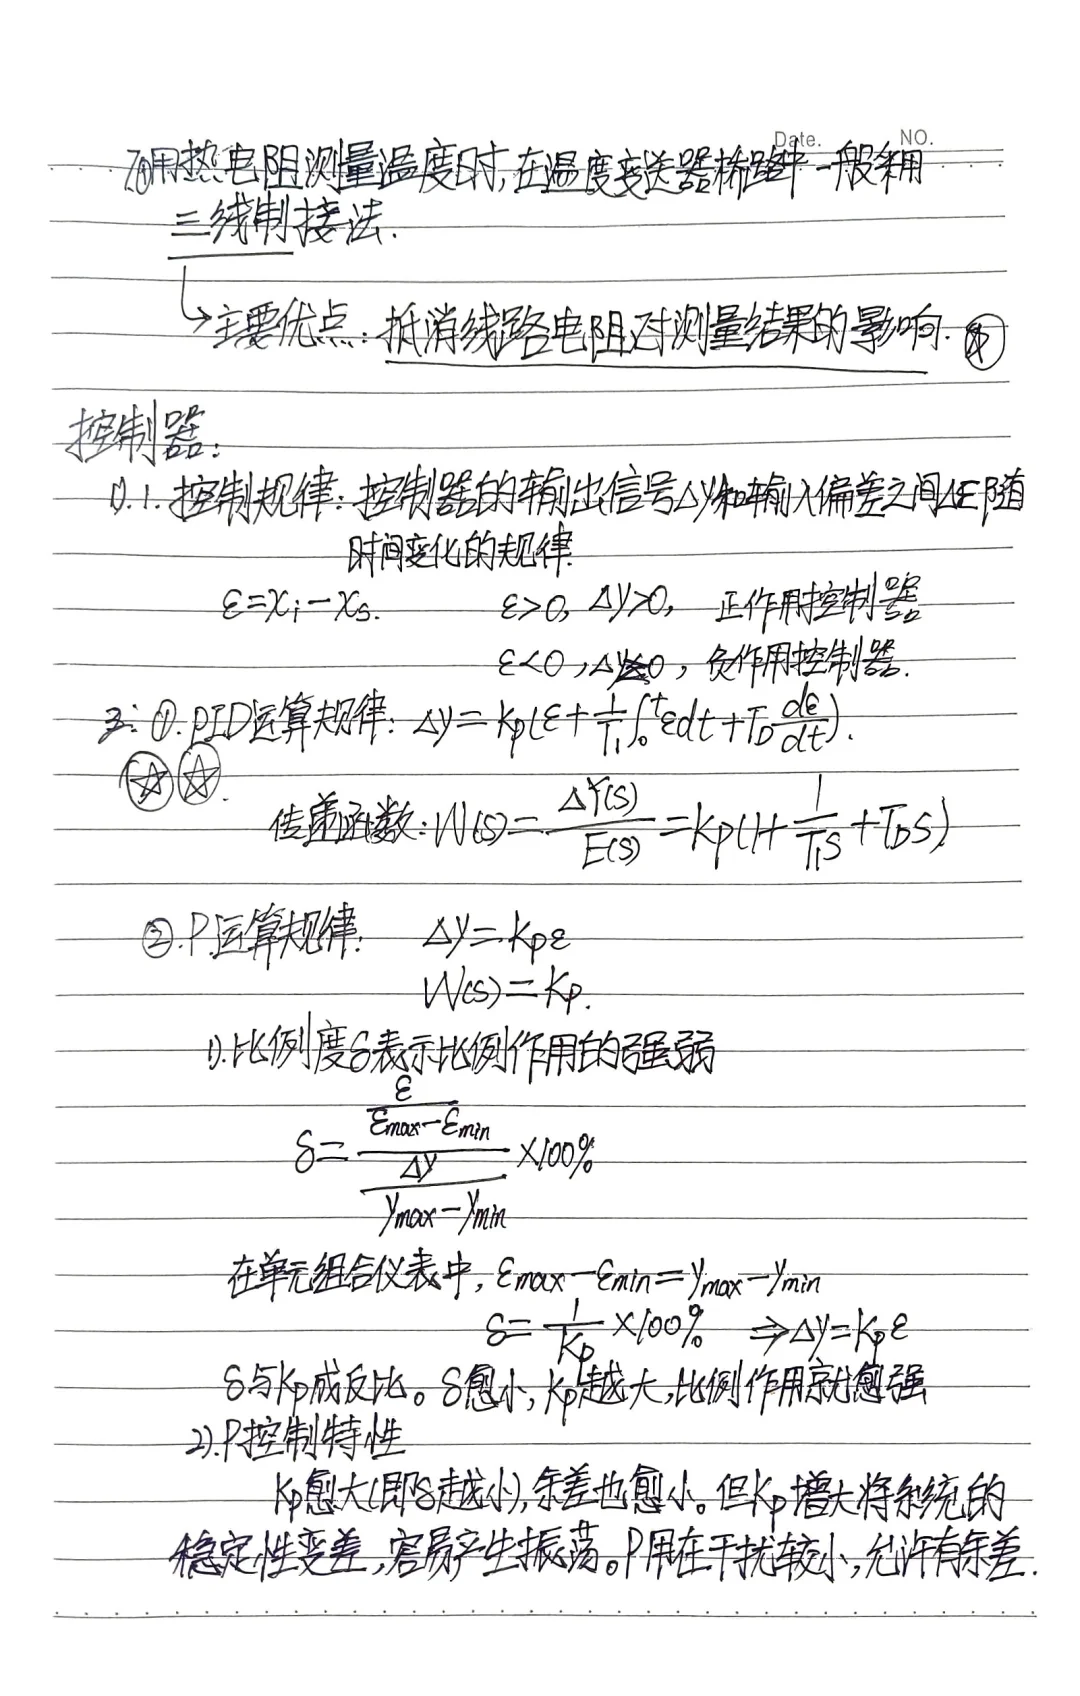 Date. NO.
7.①用热电阻测量温度时,在温度变送器桥路中一般采用
三线制接法.
↳主要优点:抵消线路电阻对测量结果的影响.
控制器:
1).1.控制规律:控制器的输出信号Δy和输入偏差之间ΔE随
时间变化的规律.
ε=xi-xs. ε>0, Δy>0, 正作用控制器
ε<0, Δy<0, 负作用控制器.
2: ①.PID运算规律: Δy=Kp(ε+1/TI∫₀ᵗεdt+TD dε/dt).
传递函数:W(s)=ΔY(s)/E(s)=Kp(1+1/TIS+TDS)
②.P.运算规律: Δy=Kpε
W(s)=Kp.
1).比例度δ表示比例作用的强弱
δ=(ε/(εmax-εmin))/(Δy/(ymax-ymin))×100%
在单元组合仪表中, εmax-εmin=ymax-ymin
δ=1/Kp×100% ⇒Δy=Kpε
δ与Kp成反比。δ愈小,Kp越大,比例作用就愈强
2).P控制特性
Kp愈大(即δ越小),余差也愈小。但Kp增大将系统的
稳定性变差,容易产生振荡。P用在干扰较小,允许有余差.